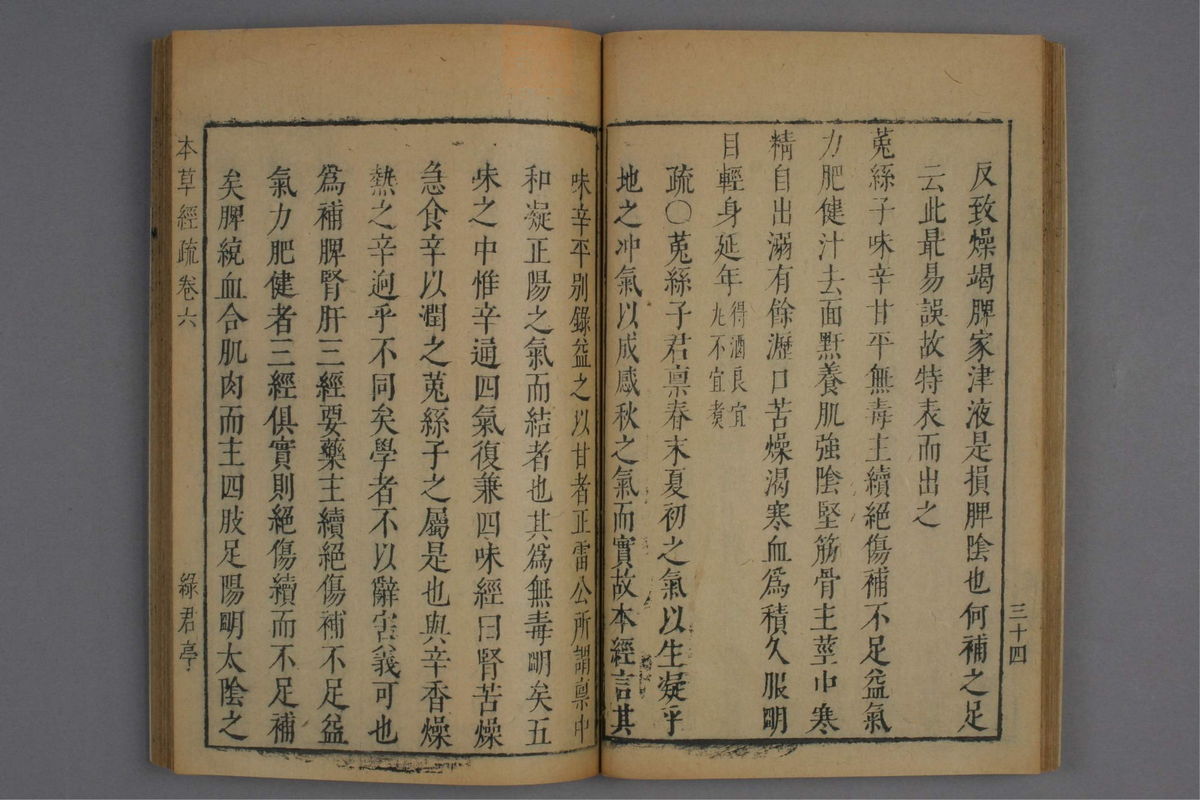 三十四
反致燥竭脾家津液是損脾陰也何補之足
云此最易誤故特表而出之
菟絲子味辛甘平無毒主續絕傷補不足益氣
力肥健汁去面䵟養肌強陰堅筋骨主莖中寒
精自出溺有餘瀝口苦燥渴寒血為積久服明
目輕身延年得酒良宜
尤不宜煑
疏〇菟絲子君禀春末夏初之氣以生凝乎
地之冲氣以成感秋之氣而實故本經言其
味辛平別錄益之以甘者正雷公所謂禀中
和凝正陽之氣而結者也其為無毒明矣五
味之中惟辛通四氣復兼四味經曰腎苦燥
急食辛以潤之菟絲子之屬是也與辛香燥
熱之辛迥乎不同矣學者不以辭害義可也
為補脾腎肝三經要藥主續絕傷補不足益
氣力肥健者三經俱實則絕傷續而不足補
矣脾統血合肌肉而主四肢足陽明太陰之
本草經疏卷六
綠君亭